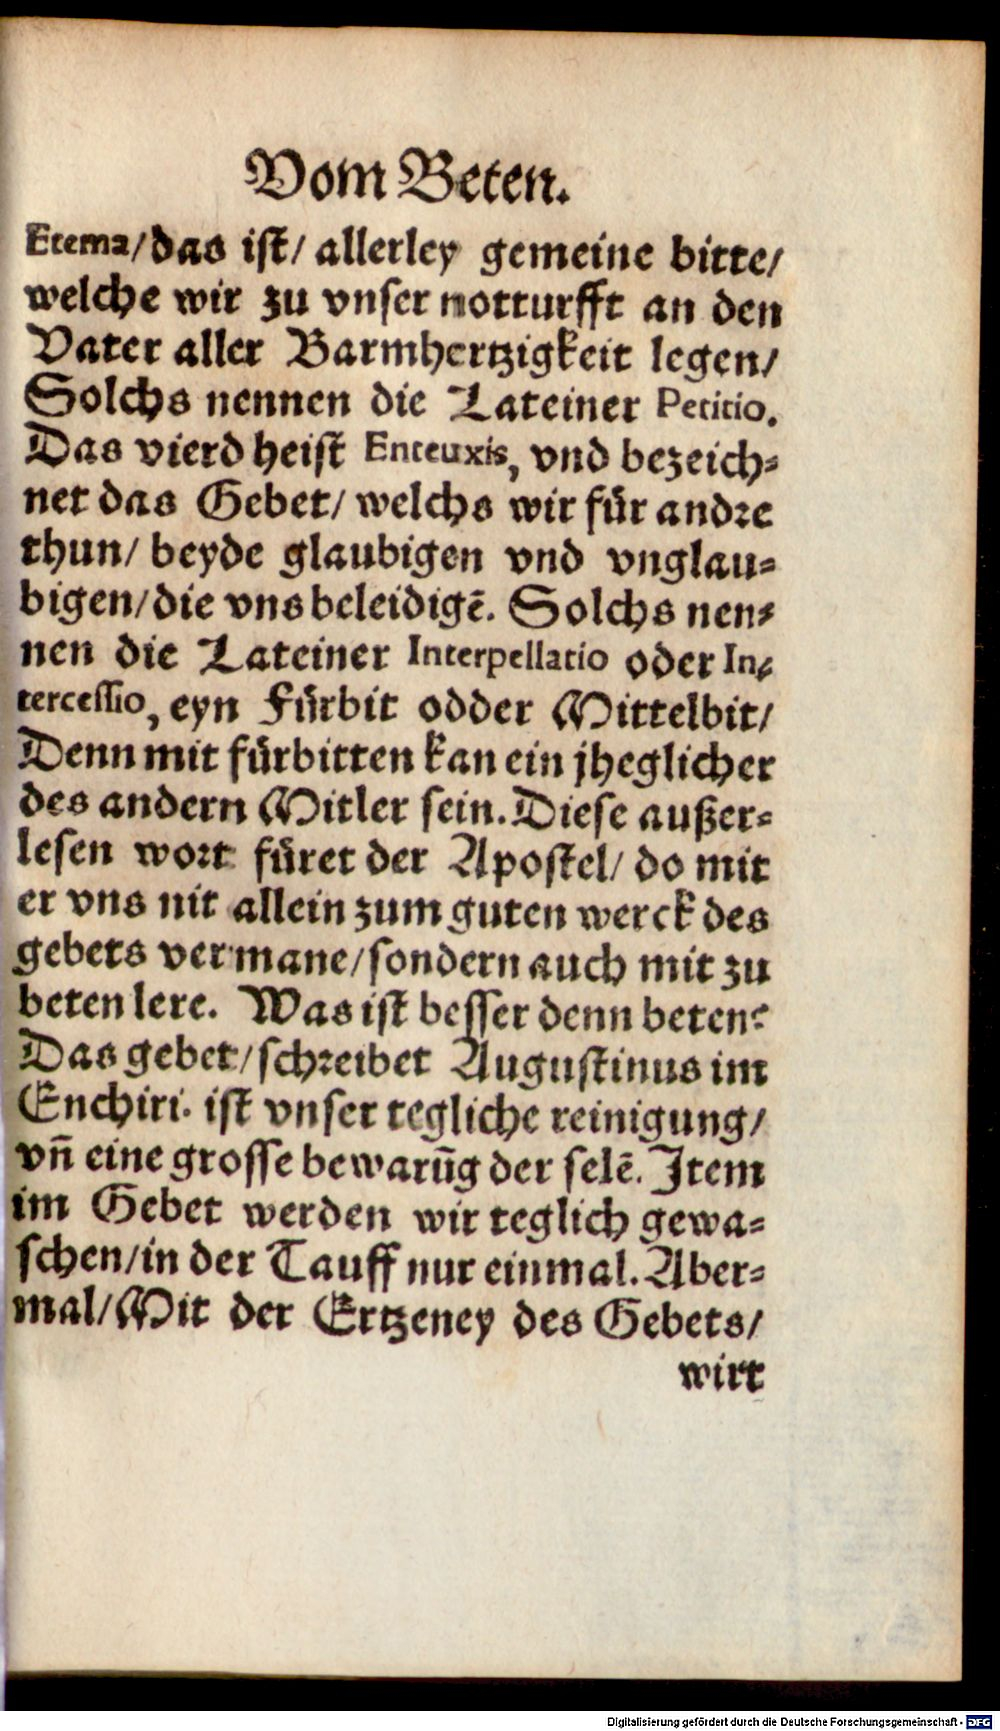 Vom Beten.
Etema/das ist/ allerley gemeine bitte/
welche wir zu vnser notturfft an den
Vater aller Barmhertzigkeit legen/
Solchs nennen die Lateiner Petitio.
Das vierd heist Enteuxis, vnd bezeich-
net das Gebet/ welchs wir für andre
thun/ beyde glaubigen vnd vnglau-
bigen/die vns beleidigē. Solchs nen-
nen die Lateiner Interpellatio oder In-
tercessio, eyn Fürbit odder Mittelbit/
Denn mit fürbitten kan ein jheglicher
des andern Mitler sein. Diese außer-
lesen wort füret der Apostel/ do mit
er vns nit allein zum guten werck des
gebets vermane/sondern auch mit zu
beten lere. Was ist besser denn beten?
Das gebet/schreibet Augustinus im
Enchiri. ist vnser tegliche reinigung/
vñ eine grosse bewarūg der selē. Item
im Gebet werden wir teglich gewa-
schen/in der Tauff nur einmal. Aber-
mal/Mit der Ertzeney des Gebets/
wirt
Digitalisierung gefördert durch die Deutsche Forschungsgemeinschaft - DFG